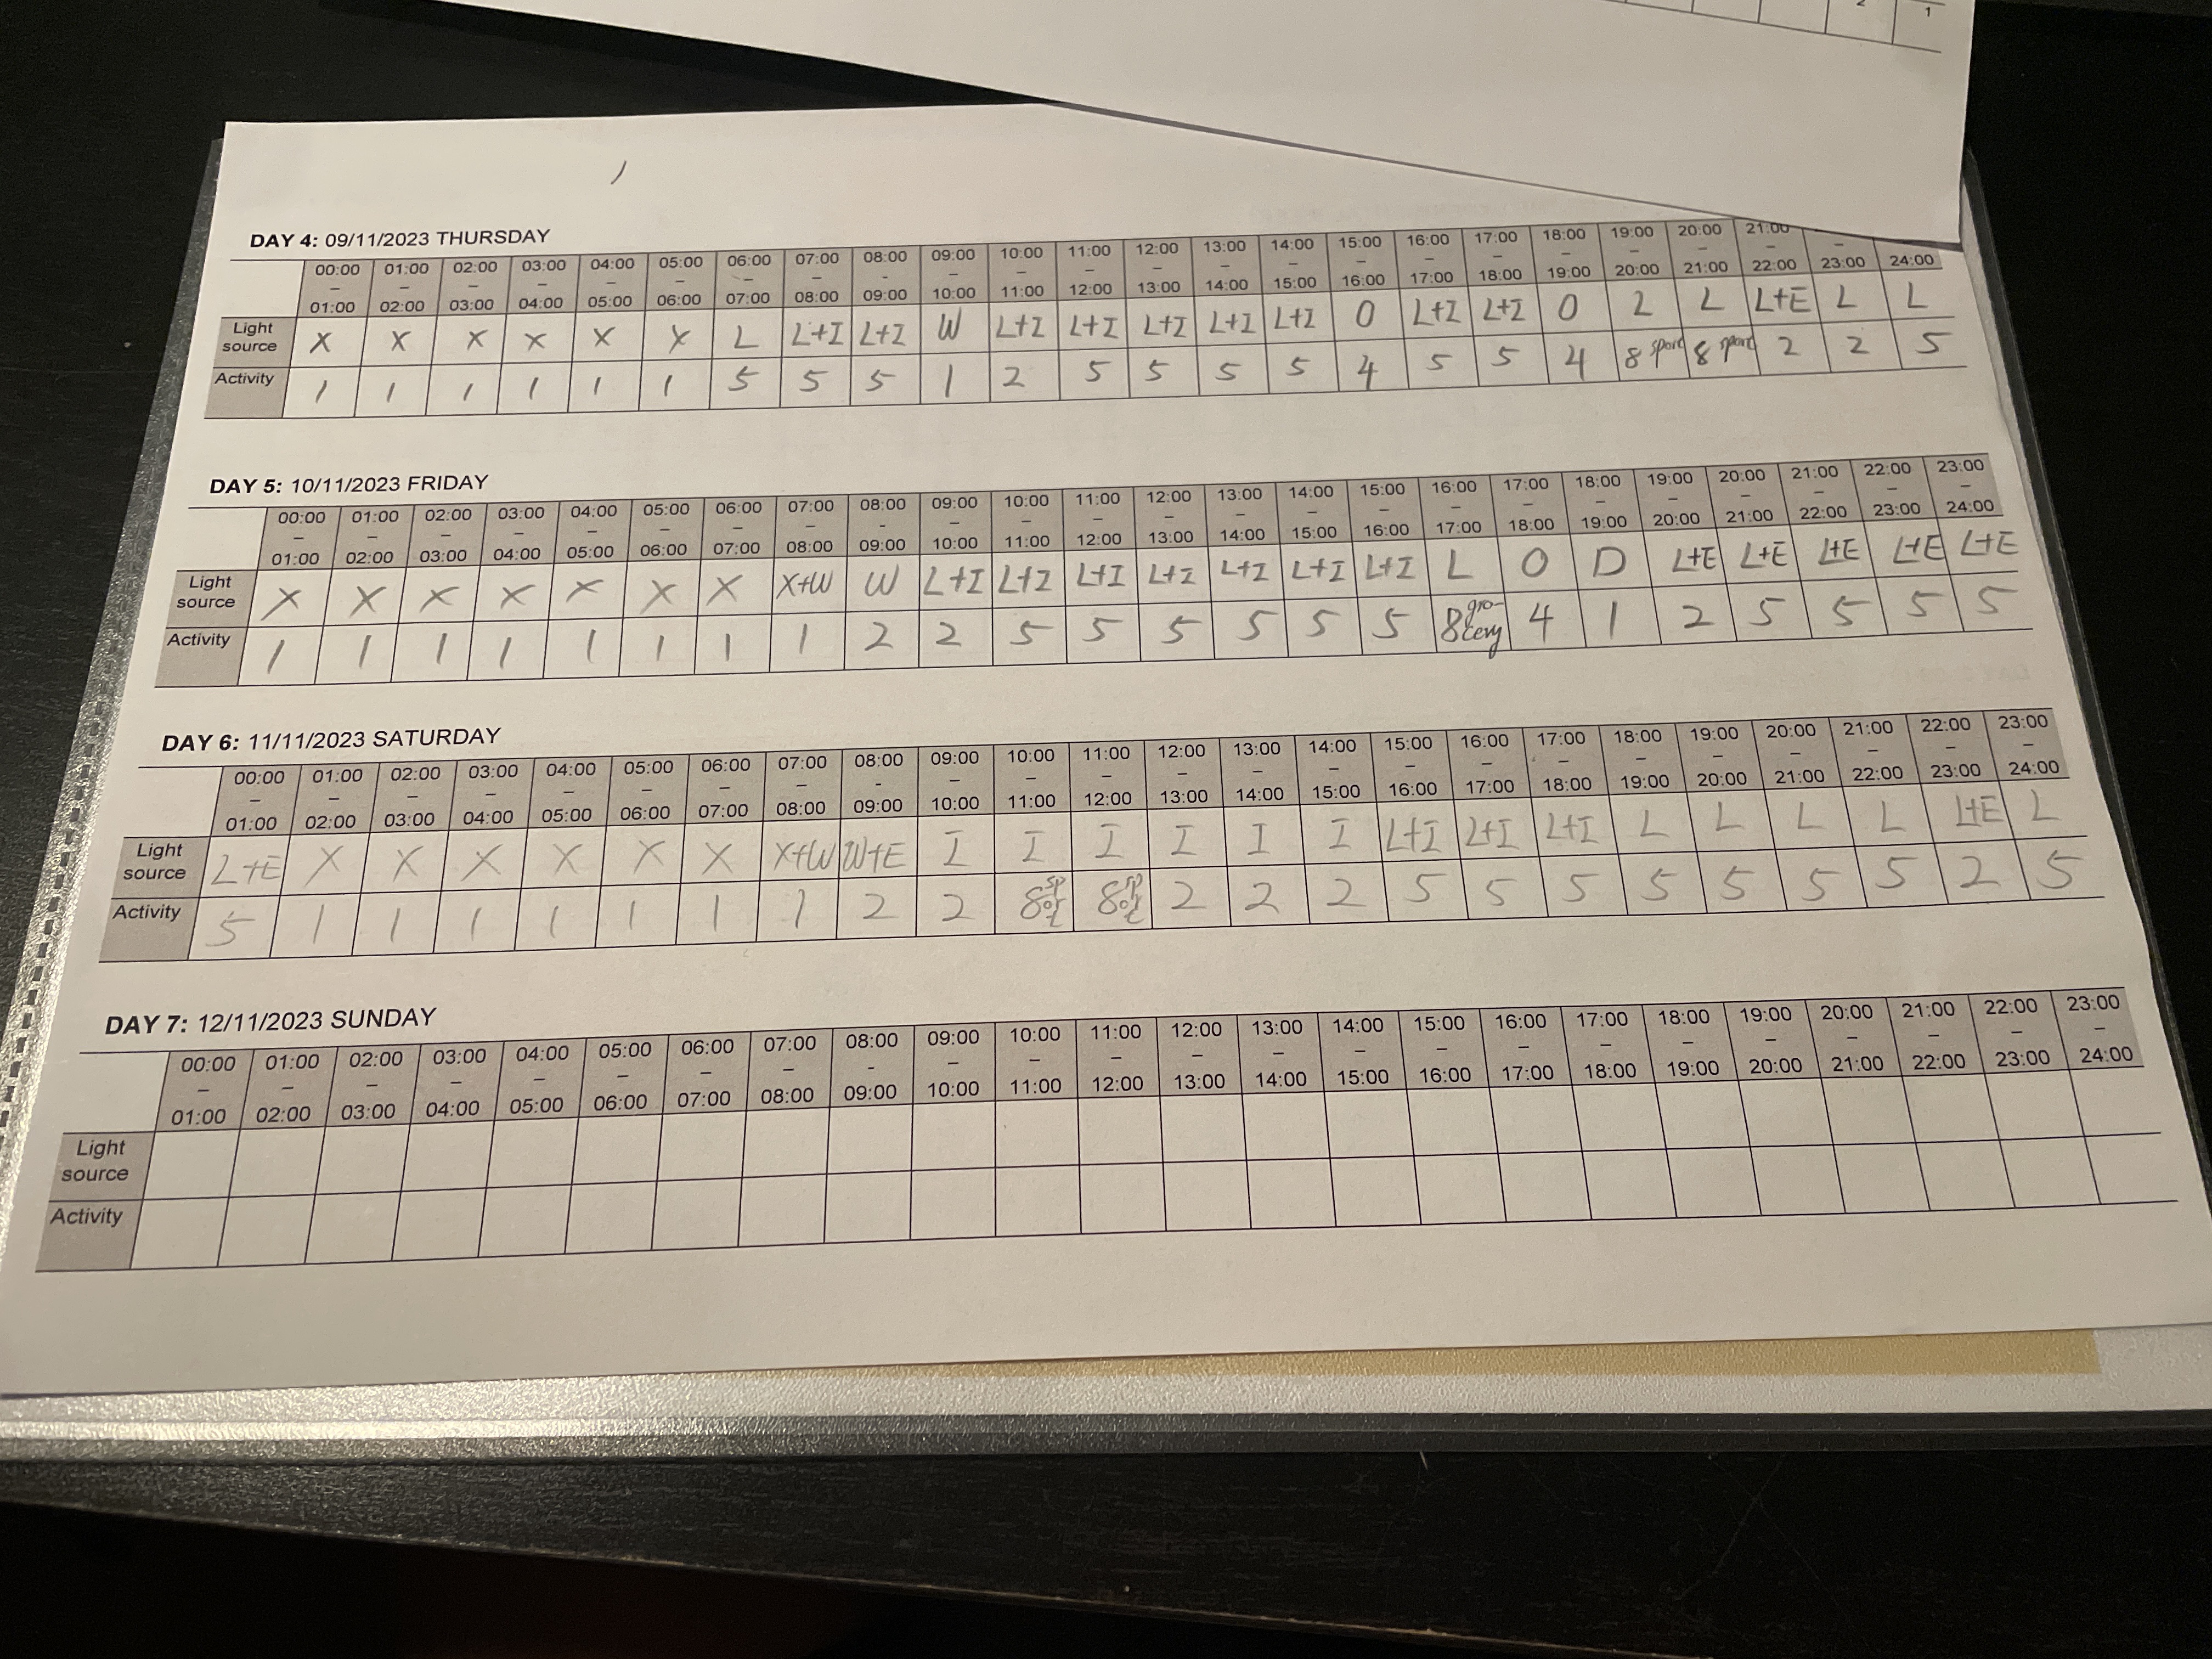 DAY 4: 09/11/2023 THURSDAY
00:00 – 01:00 01:00 – 02:00 02:00 – 03:00 03:00 – 04:00 04:00 – 05:00 05:00 – 06:00 06:00 – 07:00 07:00 – 08:00 08:00 – 09:00 09:00 – 10:00 10:00 – 11:00 11:00 – 12:00 12:00 – 13:00 13:00 – 14:00 14:00 – 15:00 15:00 – 16:00 16:00 – 17:00 17:00 – 18:00 18:00 – 19:00 19:00 – 20:00 20:00 – 21:00 21:00 – 22:00 – 23:00 24:00
Light source X X X X X X L L+I L+I W L+I L+I L+I L+I L+I O L+I L+I O L L L+E L L
Activity 1 1 1 1 1 1 5 5 5 1 2 5 5 5 5 4 5 5 4 8 sport 8 sport 2 2 5
DAY 5: 10/11/2023 FRIDAY
00:00 – 01:00 01:00 – 02:00 02:00 – 03:00 03:00 – 04:00 04:00 – 05:00 05:00 – 06:00 06:00 – 07:00 07:00 – 08:00 08:00 – 09:00 09:00 – 10:00 10:00 – 11:00 11:00 – 12:00 12:00 – 13:00 13:00 – 14:00 14:00 – 15:00 15:00 – 16:00 16:00 – 17:00 17:00 – 18:00 18:00 – 19:00 19:00 – 20:00 20:00 – 21:00 21:00 – 22:00 22:00 – 23:00 23:00 – 24:00
Light source X X X X X X X X+W W L+I L+I L+I L+I L+I L+I L+I L O D L+E L+E L+E L+E L+E
Activity 1 1 1 1 1 1 1 1 2 2 5 5 5 5 5 5 8 gro-cery 4 1 2 5 5 5 5
DAY 6: 11/11/2023 SATURDAY
00:00 – 01:00 01:00 – 02:00 02:00 – 03:00 03:00 – 04:00 04:00 – 05:00 05:00 – 06:00 06:00 – 07:00 07:00 – 08:00 08:00 – 09:00 09:00 – 10:00 10:00 – 11:00 11:00 – 12:00 12:00 – 13:00 13:00 – 14:00 14:00 – 15:00 15:00 – 16:00 16:00 – 17:00 17:00 – 18:00 18:00 – 19:00 19:00 – 20:00 20:00 – 21:00 21:00 – 22:00 22:00 – 23:00 23:00 – 24:00
Light source L+E X X X X X X X+W W+E I I I I I I L+I L+I L+I L L L L L+E L
Activity 5 1 1 1 1 1 1 1 2 2 8 8 2 2 2 5 5 5 5 5 5 5 2 5
DAY 7: 12/11/2023 SUNDAY
00:00 – 01:00 01:00 – 02:00 02:00 – 03:00 03:00 – 04:00 04:00 – 05:00 05:00 – 06:00 06:00 – 07:00 07:00 – 08:00 08:00 – 09:00 09:00 – 10:00 10:00 – 11:00 11:00 – 12:00 12:00 – 13:00 13:00 – 14:00 14:00 – 15:00 15:00 – 16:00 16:00 – 17:00 17:00 – 18:00 18:00 – 19:00 19:00 – 20:00 20:00 – 21:00 21:00 – 22:00 22:00 – 23:00 23:00 – 24:00
Light source
Activity